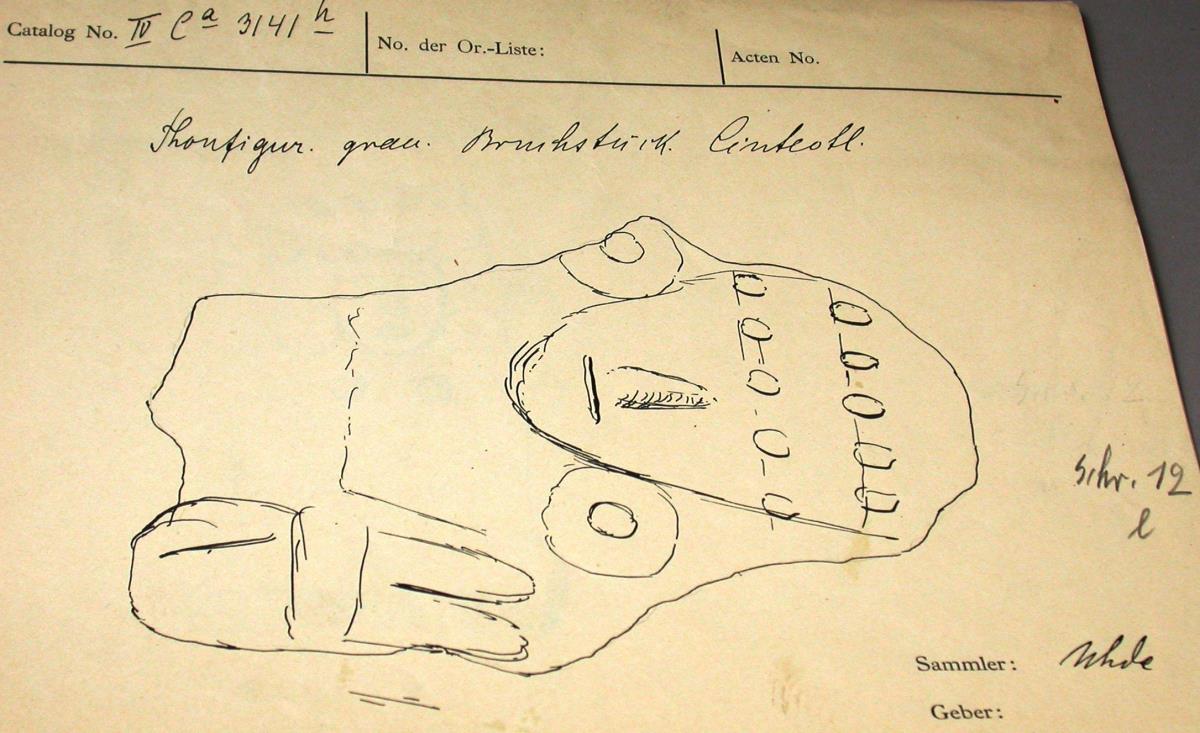 Catalog No. IV Ca 3141 h
No. der Or.-Liste:
Acten No.
Thonfigur. grau. Bruchstück. Cinteotl.
Schr. 12
l
Sammler: Uhde
Geber: